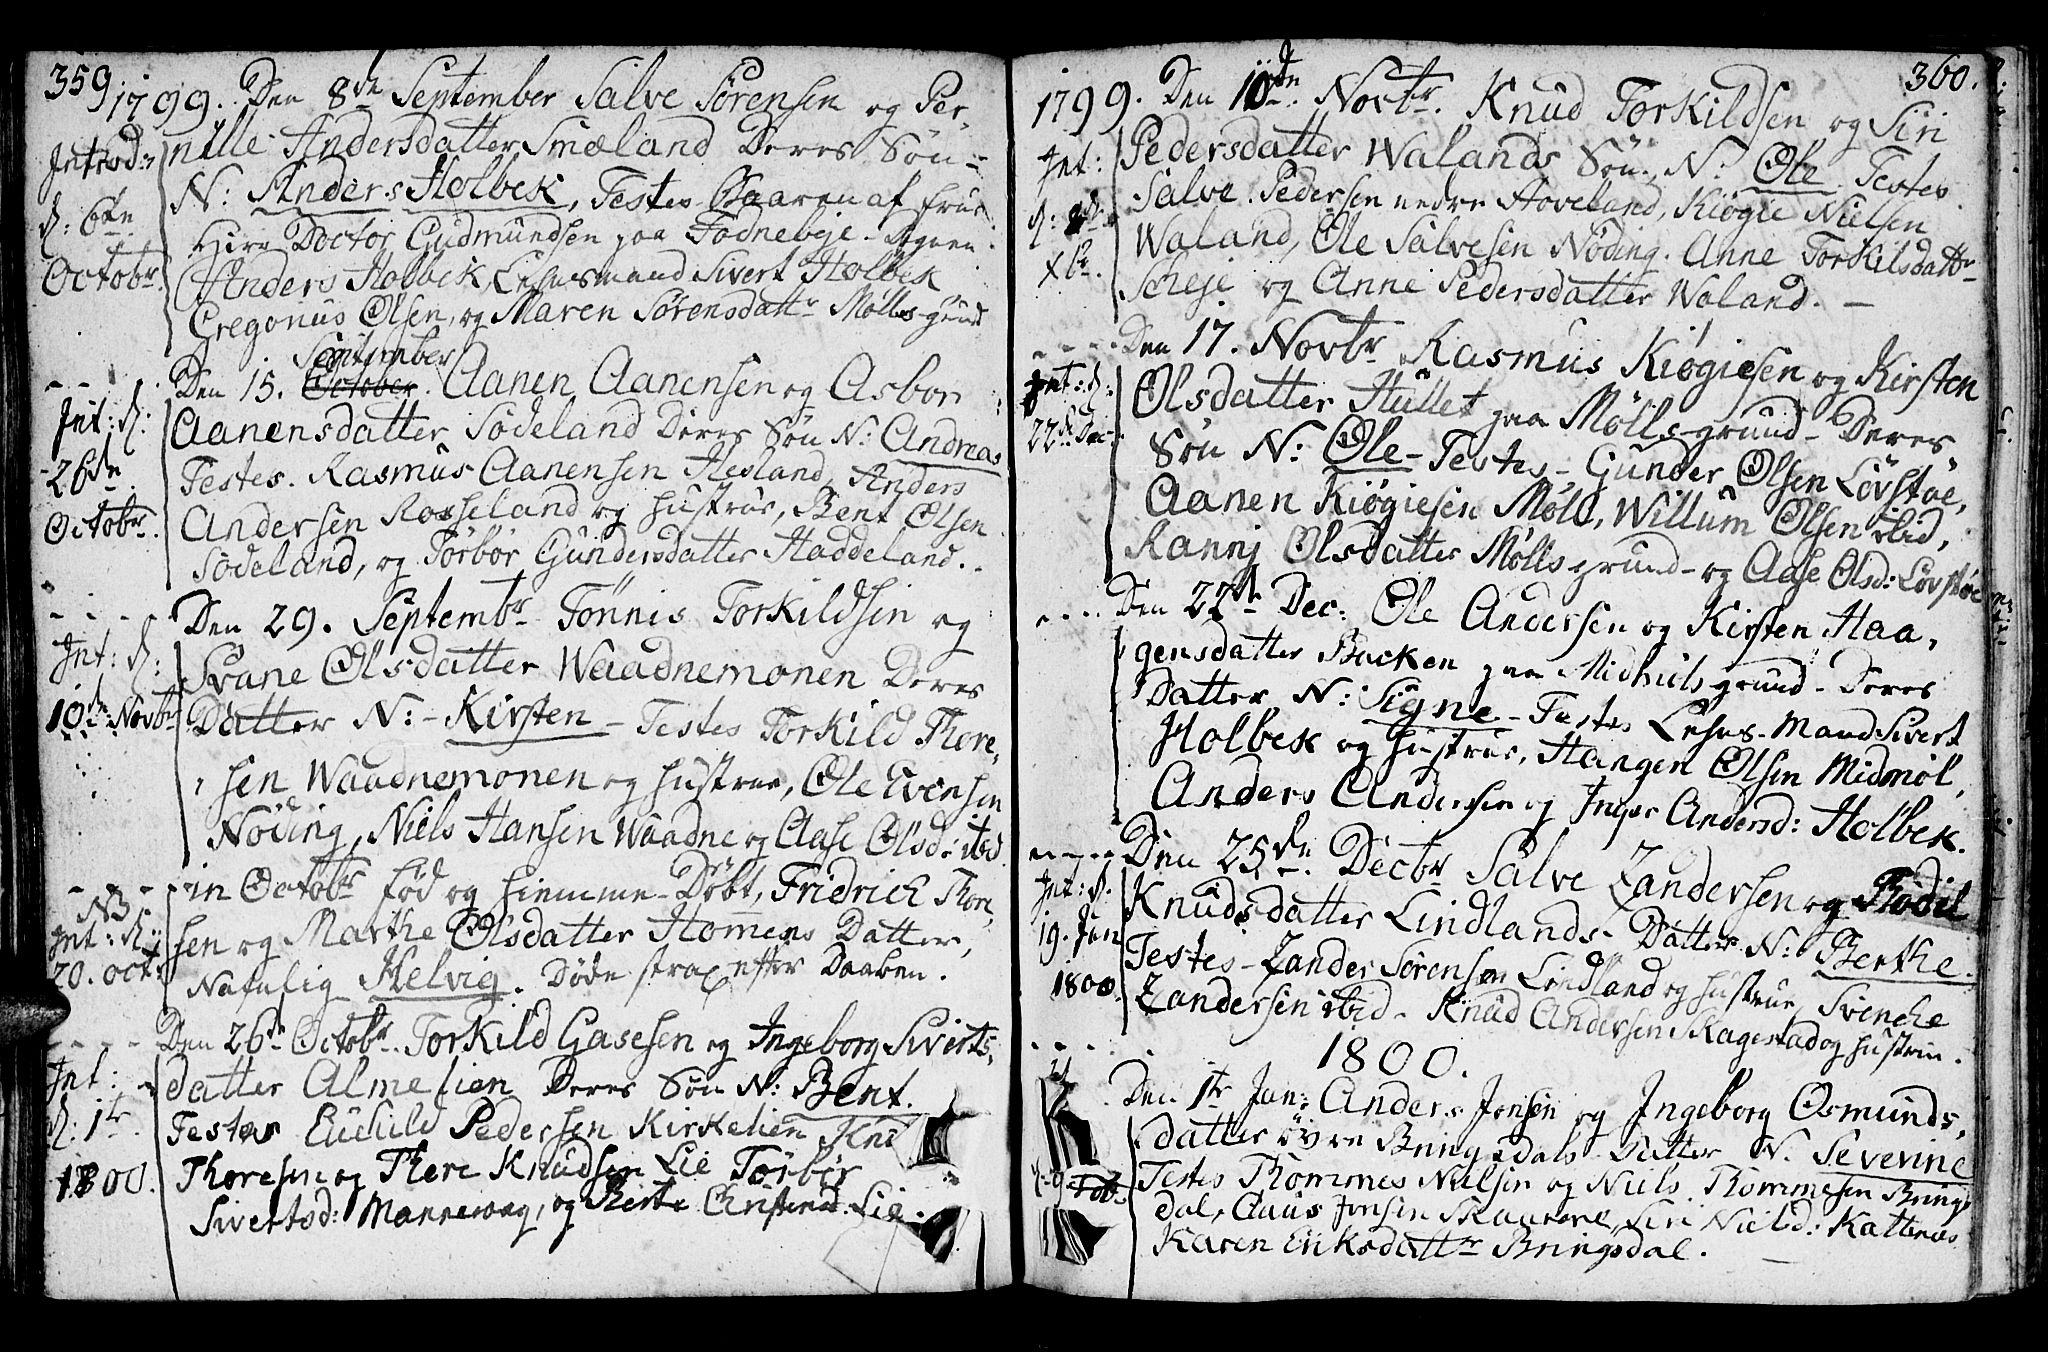 359
1799. Den 8de September Salve Sörensen og Per-
nille Andersdatter Smæland Deres Sön
N: Anders Holbek, Testes Baaren af Frue
Herr Doctor Gudmundsen paa Fodneböje
Anders Holbek, Lehnsmand Sivert Holbek
Gregonius Olsen, og Maren Sörensdattr Mölles-grund
Introd:
d: 6te
Octobr.
September
Den 15. October. Aanen Aanensen og Asbor
Aanensdatter Södeland Deres Sön N: Andreas
Testes. Rasmus Aanensen Hesland, Anders
Andersen Rosseland og hustrue, Bent Olsen
Södeland, og Torbor Gundersdatter Haddeland.
Int: d:
26de
Octobr.
Den 29. Septembr Tönnis Torkildsen og
Svane Olsdatter Waadnemonen Deres
Datter N:- Kirsten - Testes Torkild Thore,
sen Waadnemonen og hustrue, Ole Evensen
Nöding, Niels Hansen Waadne og Aase Olsd: ibd
Int: d:
10de Novbr
in Octobr fød og hiemme-Döbt, Fridrich Thore,
sen og Marthe Olsdatter Homens Datter,
Nafnlig Helvig. Döde strax efter Daaben.
NB
Int: d:
20. oct:
Den 26de Octobr. Torkild Gasesen og Ingeborg Siverts,
datter Almelien Deres Sön N: Bent.
Testes Euchild Pedersen Kirkelien Knu
Thoresen og Thore Knudsen Lie Torbör
Sivertsd: Mannevaag, og Berte Christensd. Lie.
Int:
d: 1te
1800.
360.
1799. Den 10de Novbr. Knud Torkildsen og Siri
Pedersdatter Walands Sön. N: Ole. Testes
Salve Pedersen nedre Hoveland, Kiögie Nielsen
Waland, Ole Salvesen Nöding. Anne Torkilsdattr
Scheje og Anne Pedersdatter Waland. -
Int:
d: 8de
Xbr.
Den 17. Novbr Rasmus Kiögiesen og Kirsten
Olsdatter Hullet paa Mölls-grund - Deres
Sön N: Ole - Testes - Gunder Olsen Lövstöe,
Aanen Kiögiesen Möll, Willum Olsen ibid,
Rannj Olsdatter Mölls grund - og Aase Olsd: Lövstöe
Int: d:
22de Dec
Den 22de Dec: Ole Andersen og Kirsten Haa,
gensdatter Backen paa Midhuls grund - Deres
Datter N: Signe - Testes Lehns-Mand Sivert
Holbek og hustrue, Haagen Olsen Midmöl,
Anders Andersen og Inger Andersd: Holbek.
Den 25de Decbr Salve Zandersen og Bodil
Knudsdatter Lindlands - Datter N: Berthe.
Testes - Zander Sörensen Lindland og hustrue Svenche
Zandersen ibid - Knud Andersen Skagestad og hustrue.
Int: d.
19. Jan
1800.
1800.
Den 1te Jan: Anders Jonsen og Ingeborg Osmunds,
datter övre Bringsdals Datter N. Severine
Testes Thommes Nielsen og Niels Thommesen Brings
dal, Aaus Jonsen Skaarene, Siri Nielsd: Katteraas
Karen Eriksdattr Bringsdal.